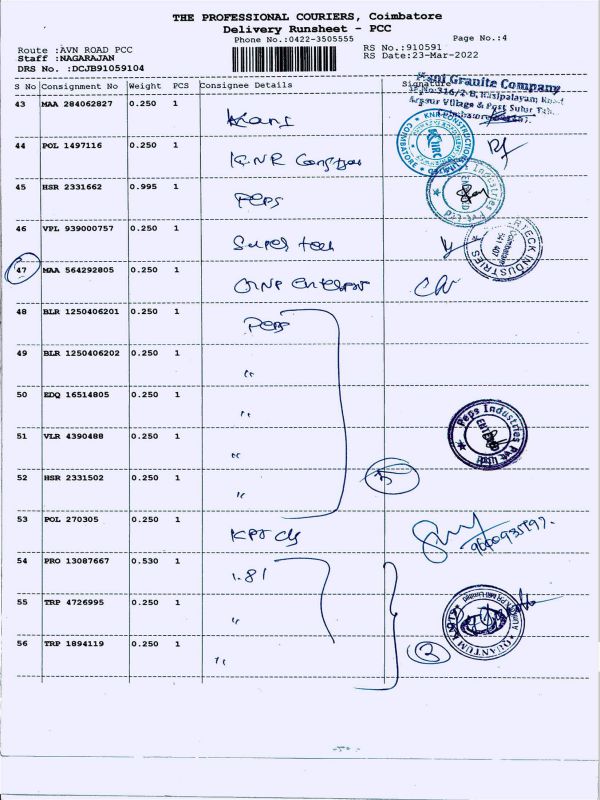 THE PROFESSIONAL COURIERS, Coimbatore
Delivery Runsheet - PCC
Phone No.:0422-3505555 Page No.:4
Route :AVN ROAD PCC RS No.:910591
Staff :NAGARAJAN RS Date:23-Mar-2022
DRS No. :DCJB91059104
S No Consignment No Weight PCS Consignee Details Signature
Mani Granite Company
43 MAA 284062827 0.250 1 Kani
44 POL 1497116 0.250 1 KNR
45 HSR 2331662 0.995 1 Peps
46 VPL 939000757 0.250 1 Super tech
47 MAA 564292805 0.250 1
48 BLR 1250406201 0.250 1 Peps
49 BLR 1250406202 0.250 1 "
50 EDQ 16514805 0.250 1 "
Peps Industries Pvt
51 VLR 4390488 0.250 1 "
52 HSR 2331502 0.250 1 " 5
53 POL 270305 0.250 1
54 PRO 13087667 0.530 1 1.81
55 TRP 4726995 0.250 1 "
56 TRP 1894119 0.250 1 " 3
QUANTUM